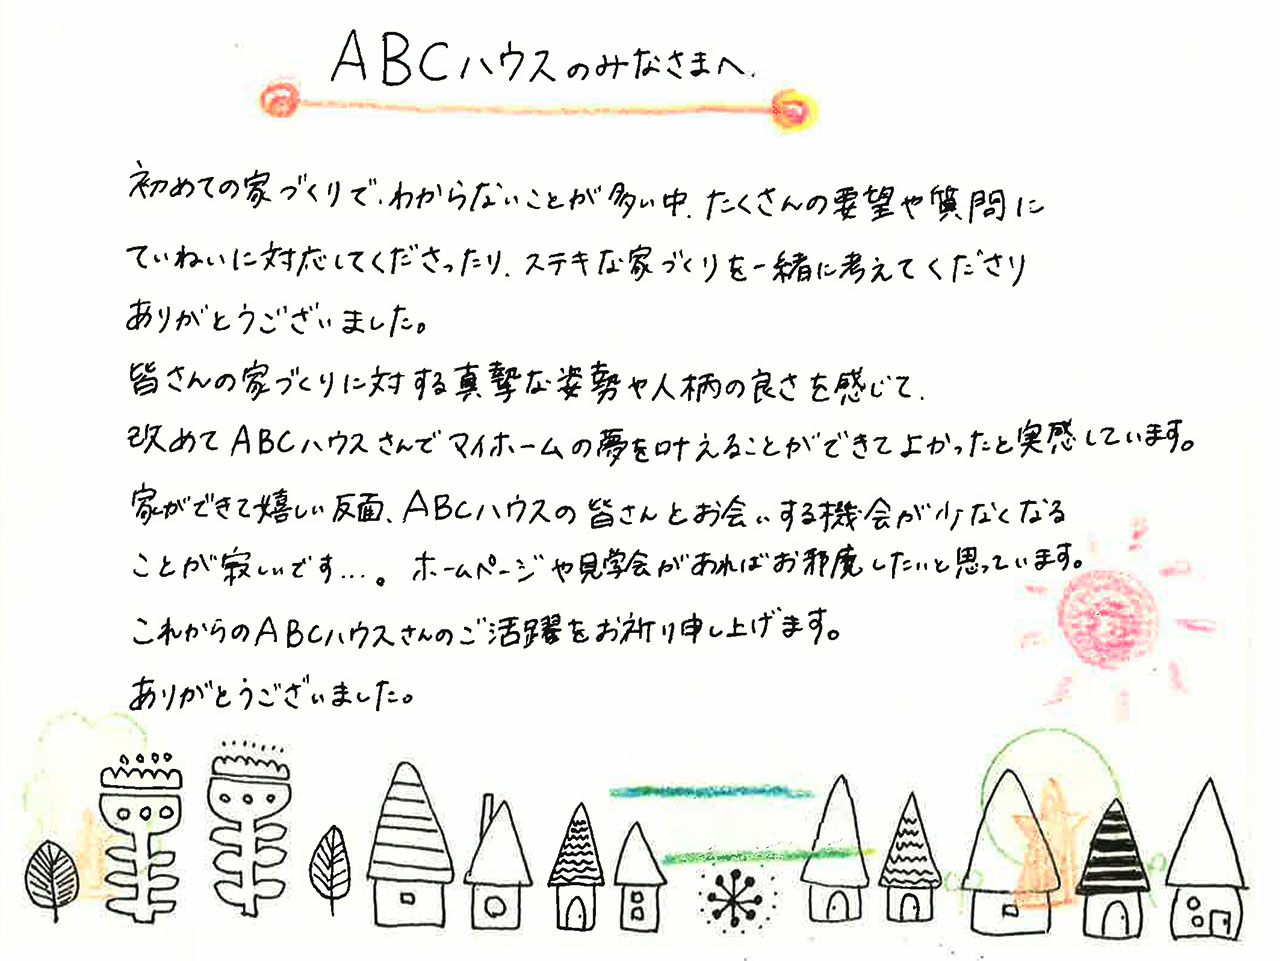 ABCハウスのみなさまへ.
初めての家づくりで、わからないことが多い中、たくさんの要望や質問に
ていねいに対応してくださったり、ステキな家づくりを一緒に考えてくださり
ありがとうございました。
皆さんの家づくりに対する真摯な姿勢や人柄の良さを感じて、
改めてABCハウスさんでマイホームの夢を叶えることができてよかったと実感しています。
家ができて嬉しい反面、ABCハウスの皆さんとお会いする機会が少なくなる
ことが寂しいです…。ホームページや見学会があればお邪魔したいと思っています。
これからのABCハウスさんのご活躍をお祈り申し上げます。
ありがとうございました。